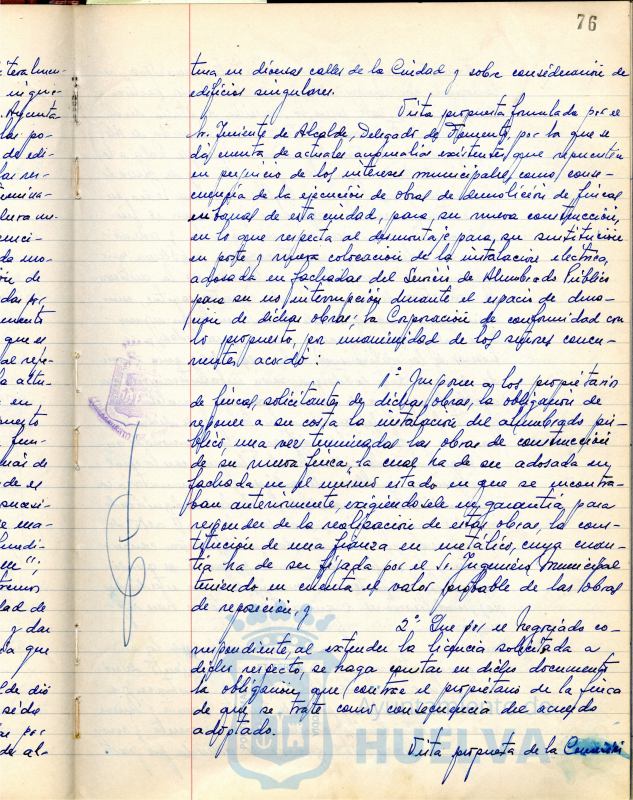 76
tura en diversas calles de la Ciudad y sobre consideración de
edificios singulares.
Vista propuesta formulada por el
Sr. Teniente de Alcalde, Delegado de Fomento, por la que se
dá cuenta de actuales anomalías existentes, que repercuten
en perjuicio de los intereses municipales, como conse-
cuencia de la ejecución de obras de demolición de fincas
urbanas de esta ciudad, para su nueva construcción,
en lo que respecta al desmontaje para su sustitución
en poste y nueva colocación de la instalación electrica,
adosada en fachadas del Servicio de Alumbrado Público
para su no interrupción durante el espacio de dura-
ción de dichas obras; la Corporación de conformidad con
lo propuesto, por unanimidad de los señores concu-
rrentes acordó:
1º Imponer a los propietarios
de fincas, solicitantes de dichas obras, la obligación de
reponer a su costa la instalación del alumbrado pú-
blico una vez terminadas las obras de construcción
de su nueva finca, la cual ha de ser adosada en
fachada en el mismo estado en que se encontra-
ban anteriormente, exigiendosele en garantía para
responder de la realización de estas obras, la cons-
titución de una fianza en metálico, cuya cuan-
tía ha de ser fijada por el Sr. Ingeniero Municipal
teniendo en cuenta el valor probable de las obras
de reposición, y
2º Que por el Negociado co-
rrespondiente, al extender la licencia solicitada a
dicho respecto, se haga constar en dicho documento
la obligación que contrae el propietario de la finca
de que se trate como consecuencia del acuerdo
adoptado.
Vista propuesta de la Comisión
Ayuntamiento de
HUELVA